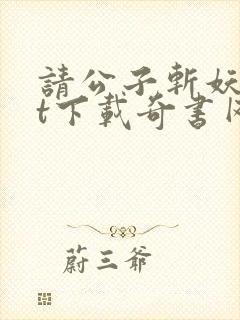 請公子斬妖
t下載奇書
蔚三爷